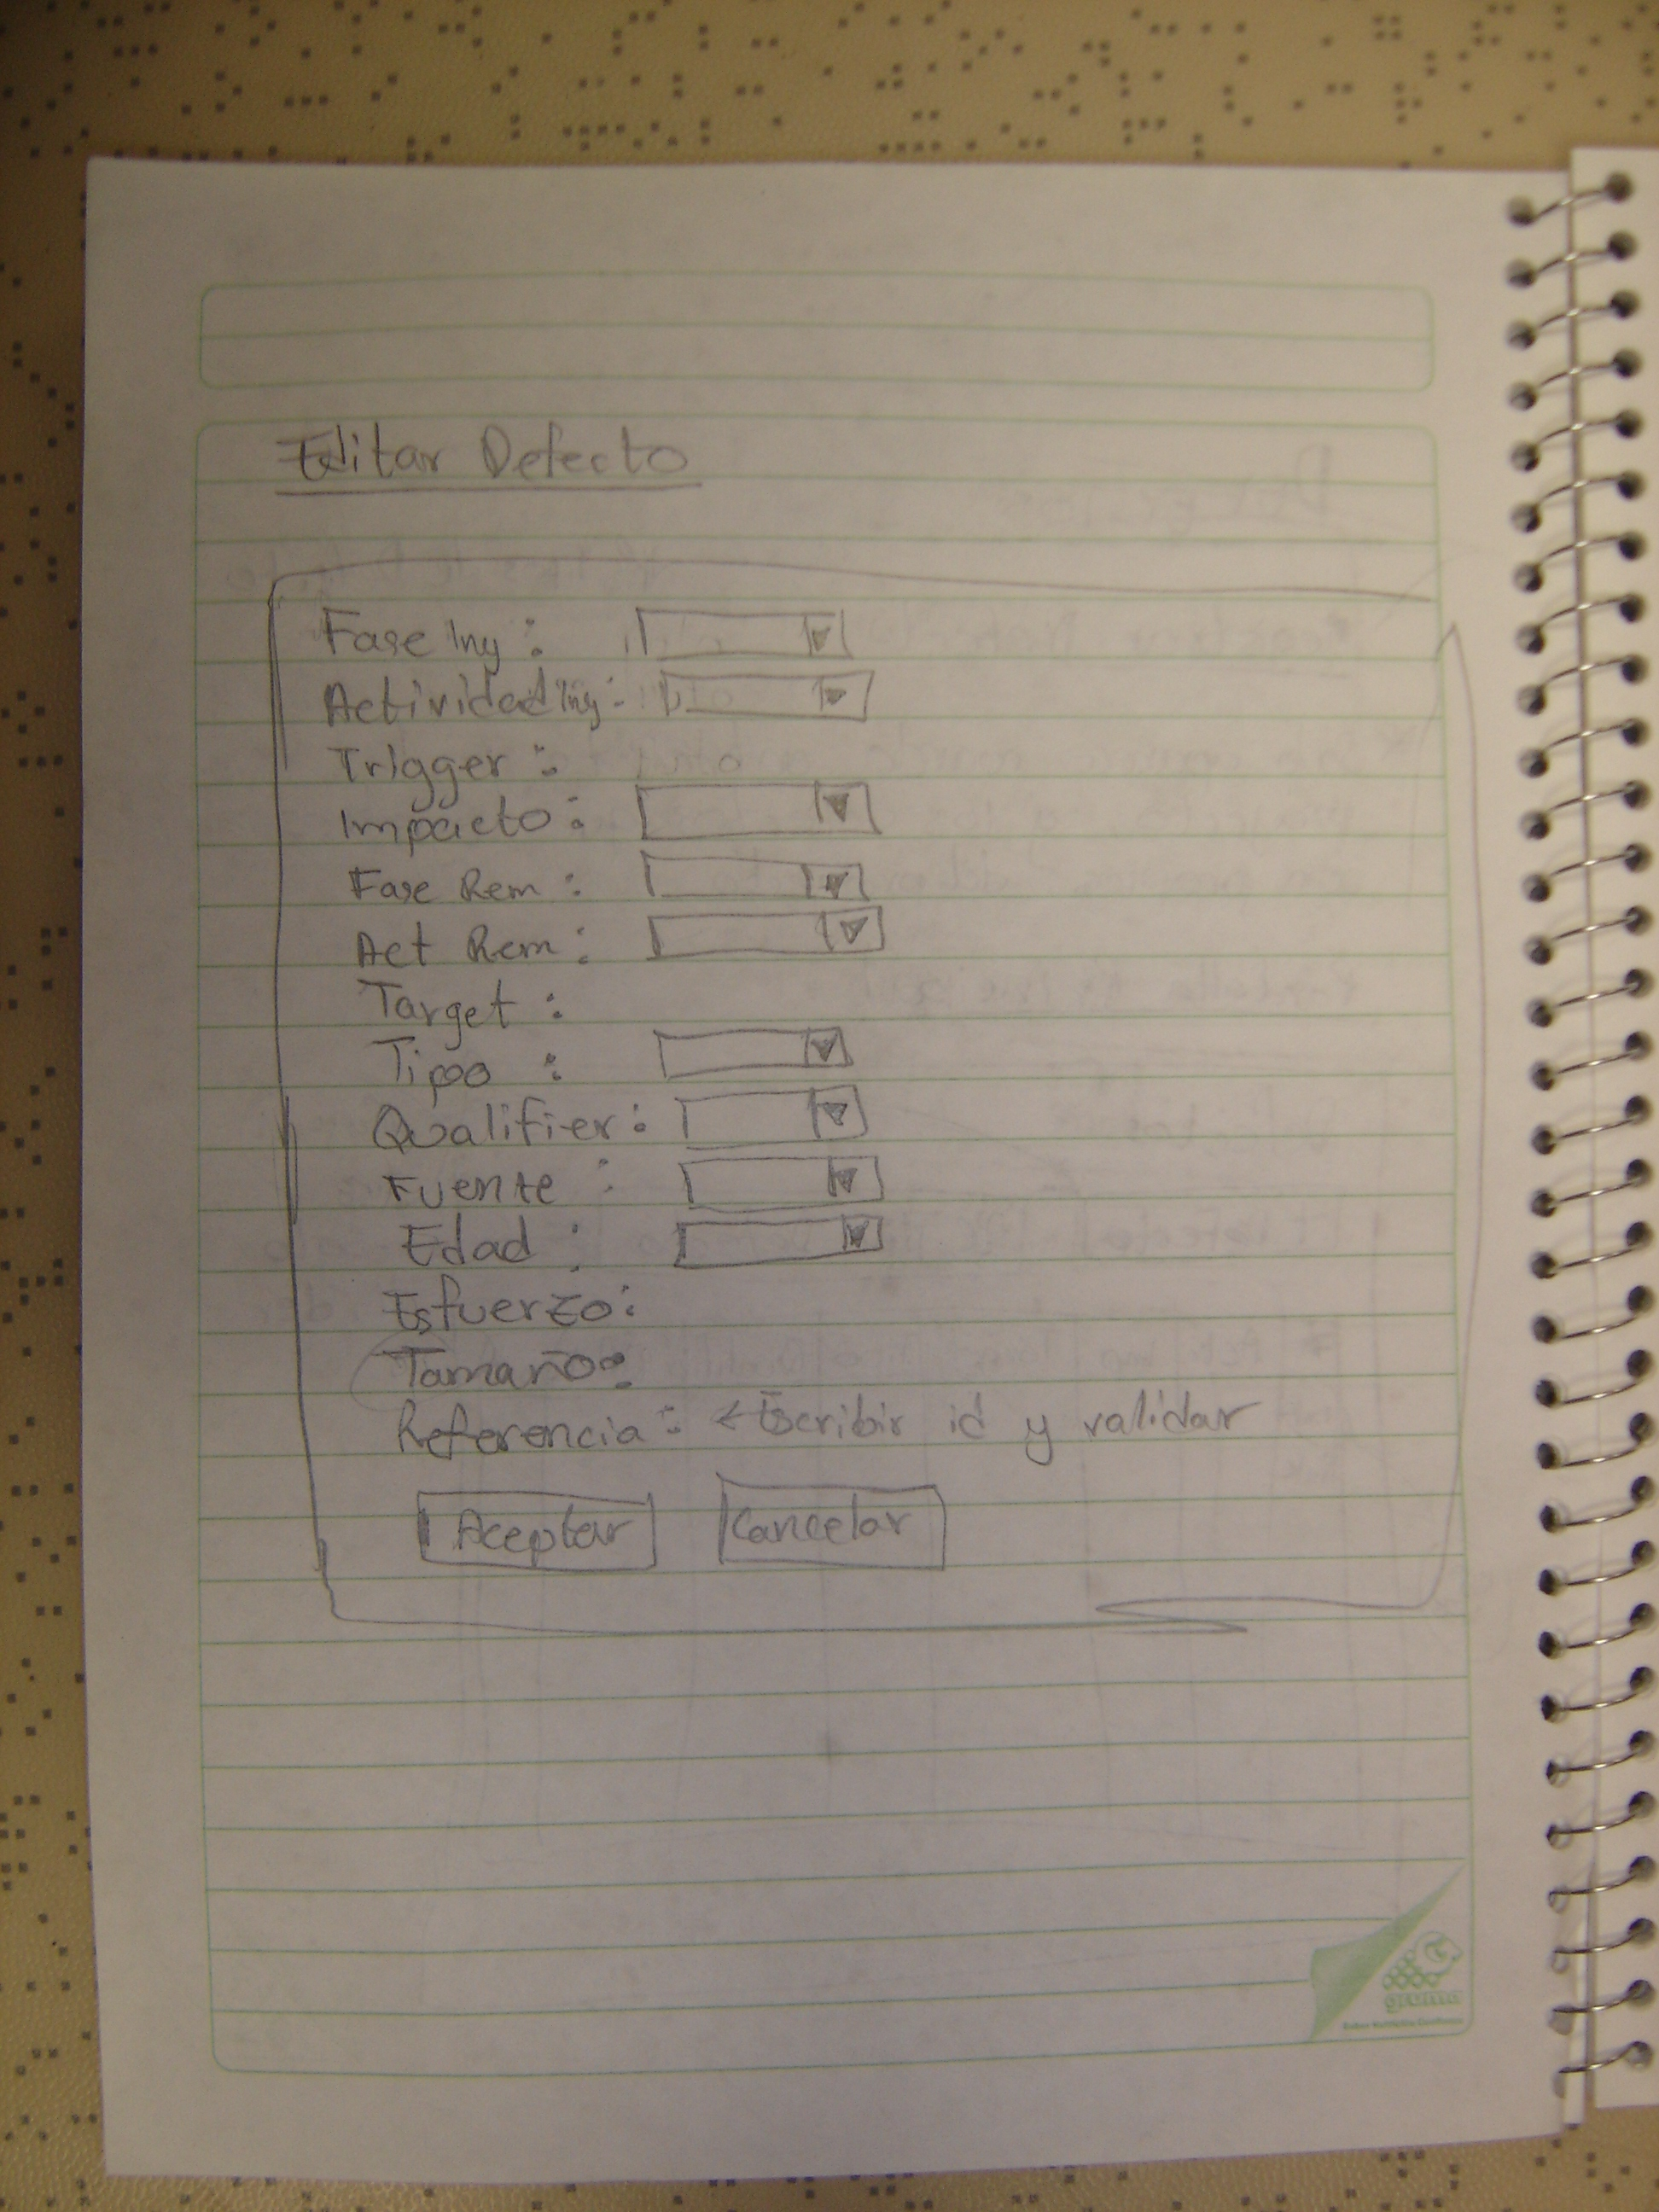 Editar Defecto
Fase Iny :
Actividad Iny :
Trigger :
Impacto :
Fase Rem :
Act Rem :
Target :
Tipo :
Qualifier :
Fuente :
Edad :
Esfuerzo :
Tamaño :
Referencia : ← Escribir id y validar
Aceptar Cancelar
gruma